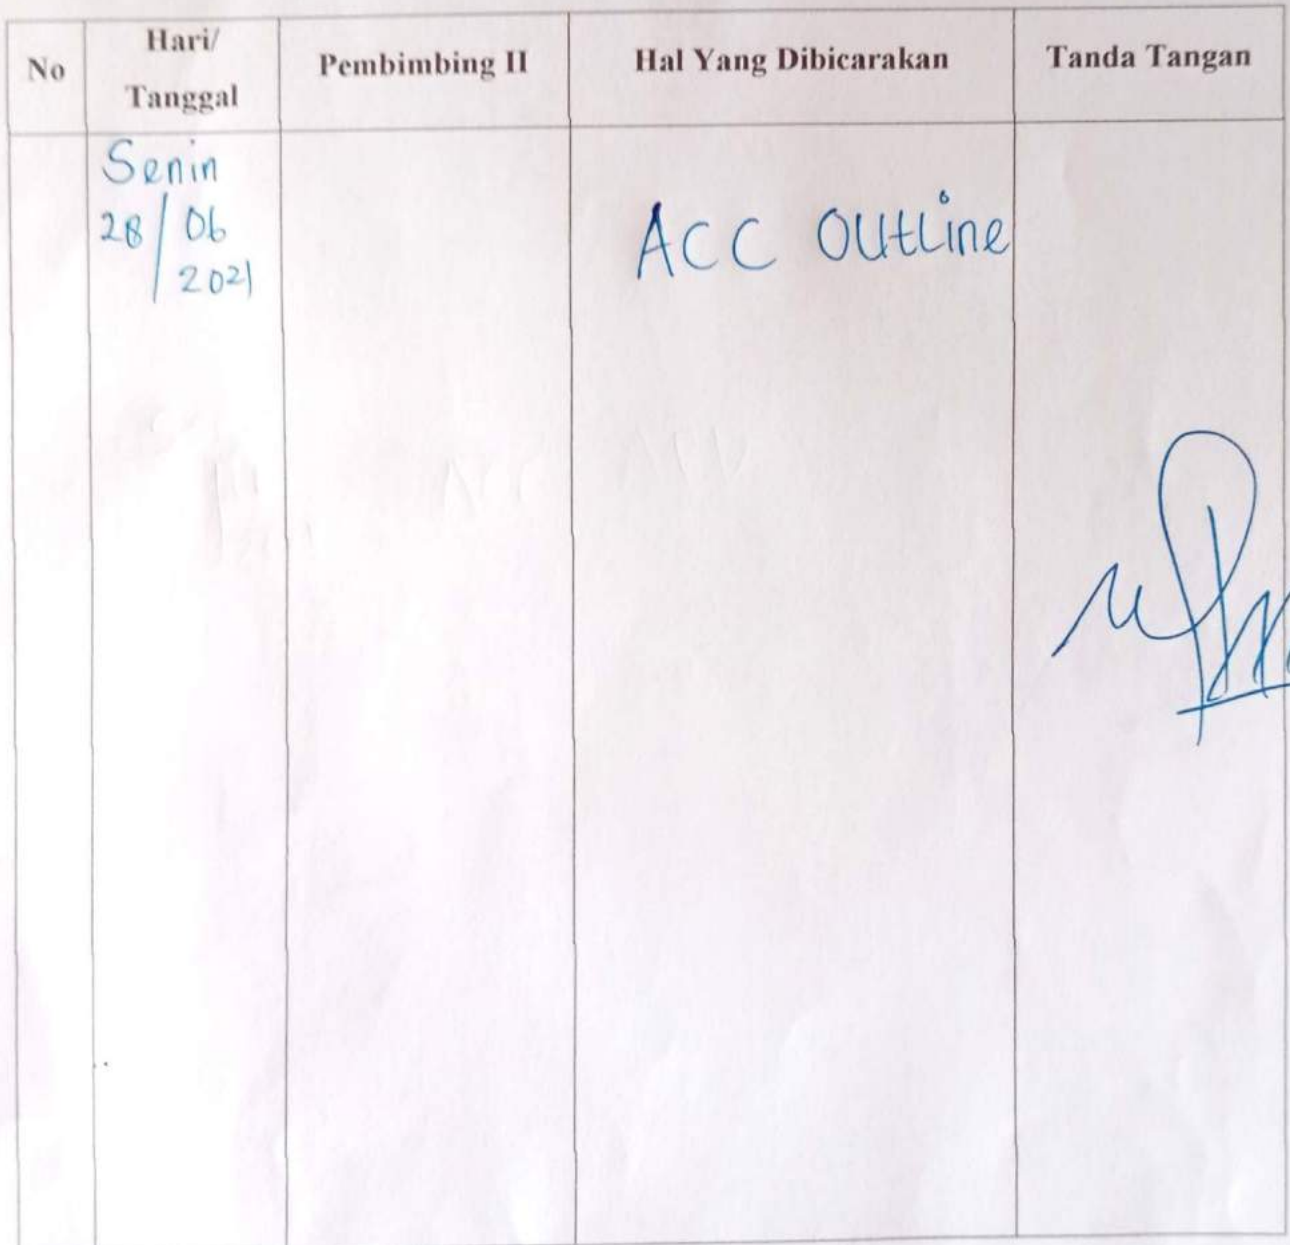 No
Hari/
Tanggal
Pembimbing II
Hal Yang Dibicarakan
Tanda Tangan
Senin
28/06
2021
ACC Outline